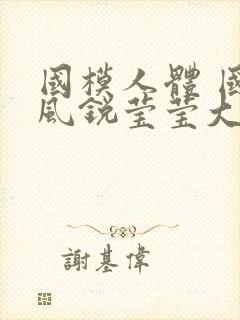 國模人體 國
風銳莹莹大
謝基偉